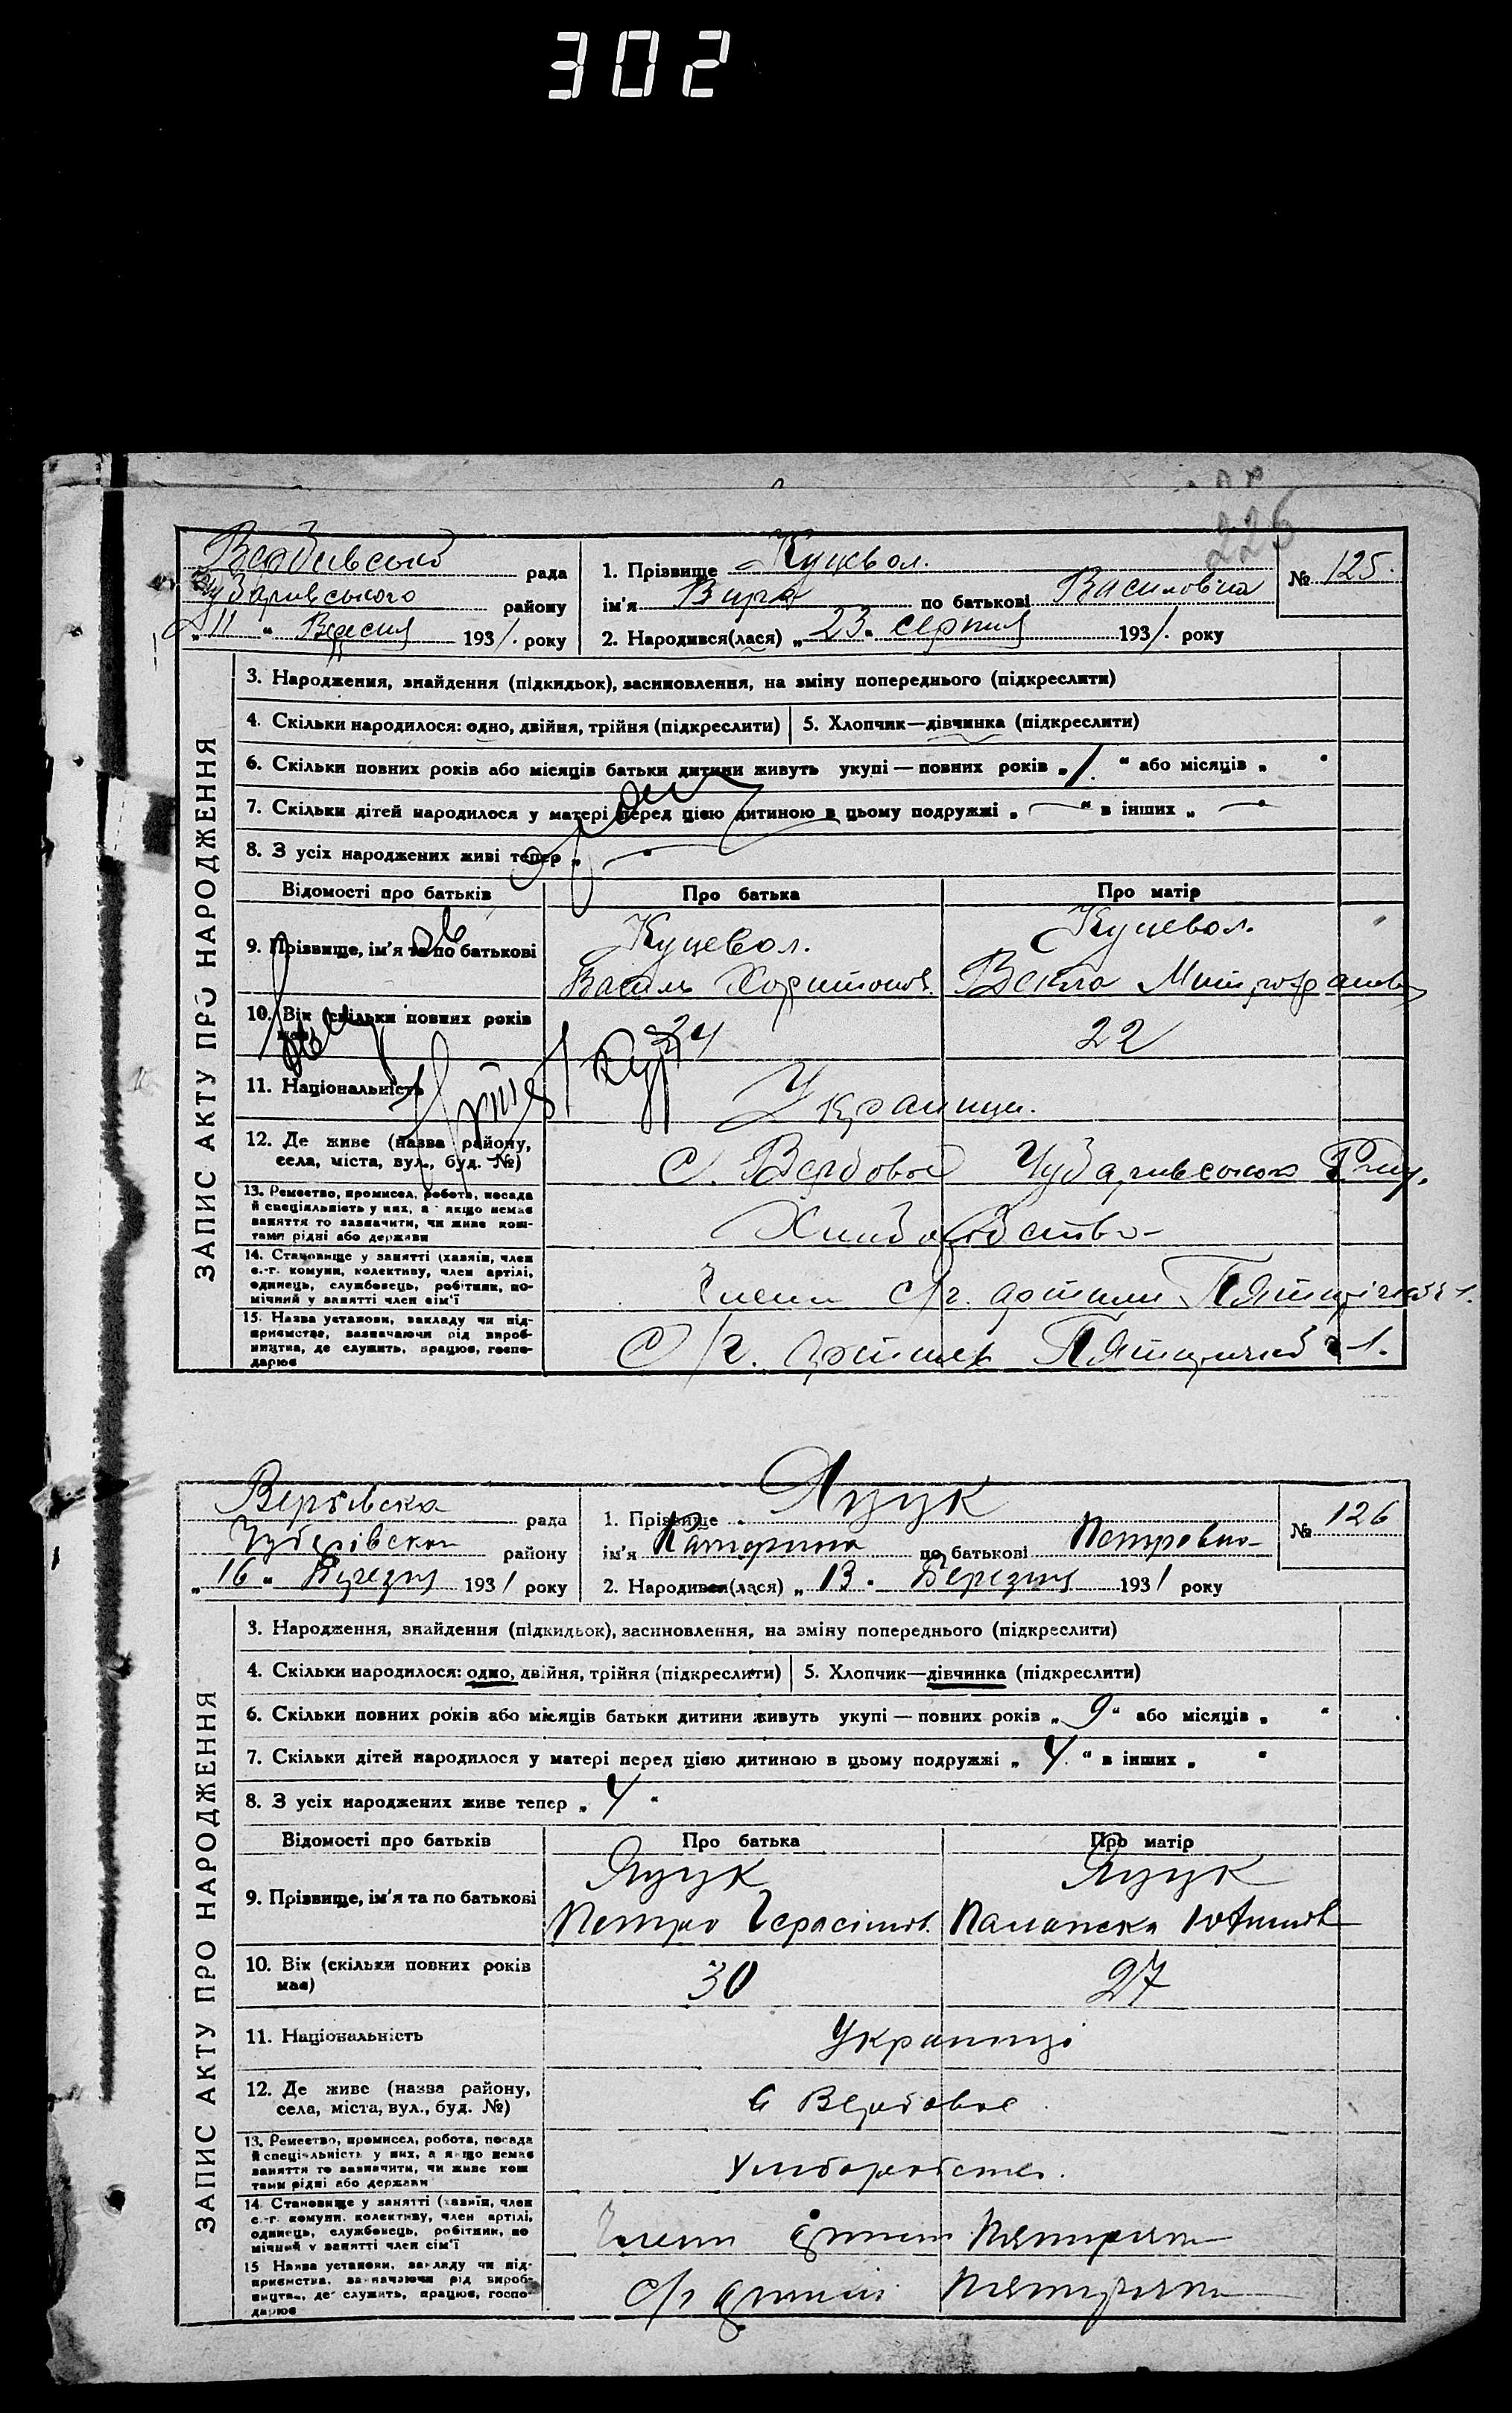 302
226
Вербівської рада
Чубарівського району
„11“ Вересня 1931. року
1. Прізвище Куцевол.
ім'я Віра по батькові Василовна
2. Народився(лася) „23“ серпня 1931. року
№ 125.
ЗАПИС АКТУ ПРО НАРОДЖЕННЯ
3. Народження, знайдення (підкидьок), засиновлення, на зміну попереднього (підкреслити)
4. Скільки народилося: одно, двійня, трійня (підкреслити) 5. Хлопчик—дівчинка (підкреслити)
6. Скільки повних років або місяців батьки дитини живуть укупі — повних років „1.“ або місяців „ “
7. Скільки дітей народилося у матері перед цією дитиною в цьому подружжі „—“ в інших „—“
8. З усіх народжених живі тепер „—“
Відомості про батьків Про батька Про матір
9. Прізвище, ім'я та по батькові Куцевол. Куцевол.
Василь Харитонов. Векла Митрофанов
10. Вік (скільки повних років 24 22
має)
11. Національність Українци.
12. Де живе (назва району,
села, міста, вул., буд. №) С. Вербове Чубарівського Рну.
13. Ремество, промисел, робота, посада
й спеціяльність у них, а якщо немає
заняття то зазначити, чи живе кош-
тами рідні або держави
Хліборобство
14. Становище у занятті (хазяїн, член
с.-г. комуни, колективу, член артілі,
одинець, службовець, робітник, по-
мічний у занятті член сім'ї
Члени с/г. артили Пятирічка 1.
15. Назва установи, закладу чи під-
приємства, зазначаючи рід вироб-
ництва, де служить, працює, госпо-
дарює
С/г. артиль Пятирички 1.
Вербівска рада
Чубарівскои району
„16“ Березня 1931 року
1. Прізвище Яцук
ім'я Катерина по батькові Петровна
2. Народився(лася) „13“ Березня 1931 року
№ 126
ЗАПИС АКТУ ПРО НАРОДЖЕННЯ
3. Народження, знайдення (підкидьок), засиновлення, на зміну попереднього (підкреслити)
4. Скільки народилося: одно, двійня, трійня (підкреслити) 5. Хлопчик—дівчинка (підкреслити)
6. Скільки повних років або місяців батьки дитини живуть укупі — повних років „9“ або місяців „ “
7. Скільки дітей народилося у матері перед цією дитиною в цьому подружжі „4“ в інших „ “
8. З усіх народжених живе тепер „4“
Відомості про батьків Про батька Про матір
9. Прізвище, ім'я та по батькові Яцук Яцук
Петро Герасімов. Палажка Юхимов
10. Вік (скільки повних років 30 27
має)
11. Національність Українці
12. Де живе (назва району,
села, міста, вул., буд. №) с Вербове
13. Ремество, промисел, робота, посада
й спеціяльність у них, а якщо немає
заняття то зазначити, чи живе кош
тами рідні або держави
Хліборобство.
14. Становище у занятті (хазяїн, член
с.-г. комуни, колективу, член артілі,
одинець, службовець, робітник, по
мічний у занятті член сім'ї
Члени артіли Пятирічка
15 Назва установи, закладу чи під-
приємства, зазначаючи рід вироб-
ництва, де служить, працює, госпо-
дарює
с/г артілі Пятирічка